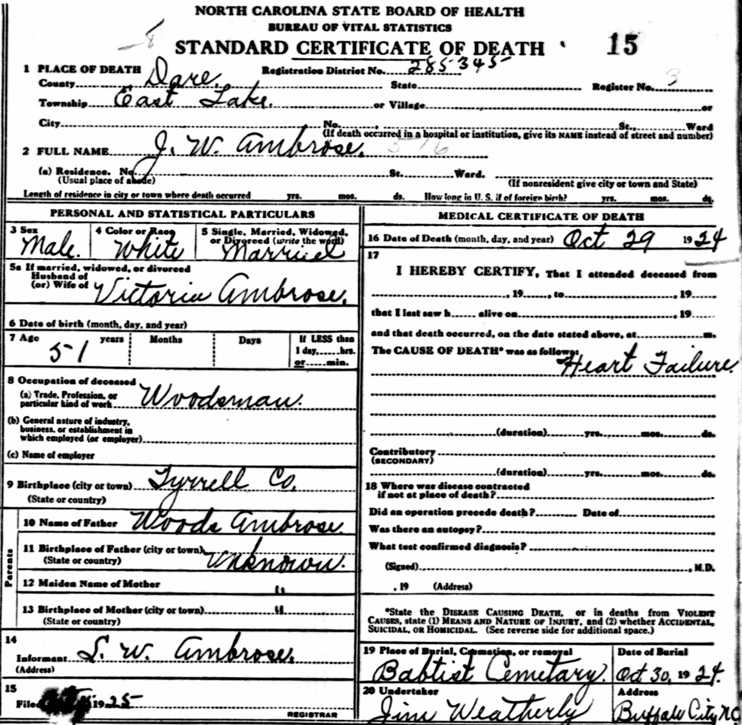 NORTH CAROLINA STATE BOARD OF HEALTH
BUREAU OF VITAL STATISTICS
STANDARD CERTIFICATE OF DEATH 15
8
1 PLACE OF DEATH Registration District No. 285345
County Dare State Register No. 3
Township East Lake or Village or
City No. St., Ward
(If death occurred in a hospital or institution, give its NAME instead of street and number)
2 FULL NAME J. W. Ambrose. 516
(a) Residence. No. St. Ward.
(Usual place of abode) (If nonresident give city or town and State)
Length of residence in city or town where death occurred yrs. mos. ds. How long in U. S. if of foreign birth? yrs. mos. ds.
PERSONAL AND STATISTICAL PARTICULARS
3 Sex 4 Color or Race 5 Single, Married, Widowed, or Divorced (write the word)
Male. White Married
5a If married, widowed, or divorced
Husband of
(or) Wife of Victoria Ambrose.
6 Date of birth (month, day, and year)
7 Age 51 years Months Days If LESS than
1 day, hrs.
or min.
8 Occupation of deceased
(a) Trade, Profession, or
particular kind of work Woodsman.
(b) General nature of industry,
business, or establishment in
which employed (or employer)
(c) Name of employer
9 Birthplace (city or town) Tyrrell Co.
(State or country)
Parents
10 Name of Father Woods Ambrose.
11 Birthplace of Father (city or town) Unknown.
(State or country)
12 Maiden Name of Mother "
13 Birthplace of Mother (city or town) "
(State or country)
14
Informant S. W. Ambrose.
(Address)
15
Filed 1925
REGISTRAR
MEDICAL CERTIFICATE OF DEATH
16 Date of Death (month, day, and year) Oct 29 1924
17
I HEREBY CERTIFY, That I attended deceased from
, 19 , to , 19
that I last saw h alive on , 19
and that death occurred, on the date stated above, at m.
The CAUSE OF DEATH* was as follows:
Heart Failure.
(duration) yrs. mos. ds.
Contributory
(SECONDARY)
(duration) yrs. mos. ds.
18 Where was disease contracted
if not at place of death?
Did an operation precede death? Date of
Was there an autopsy?
What test confirmed diagnosis?
(Signed) , M.D.
, 19 (Address)
*State the DISEASE CAUSING DEATH, or in deaths from VIOLENT
CAUSES, state (1) MEANS AND NATURE OF INJURY, and (2) whether ACCIDENTAL,
SUICIDAL, OR HOMICIDAL. (See reverse side for additional space.)
19 Place of Burial, Cremation, or removal Date of Burial
Babtist Cemetary. Oct 30, 1924.
20 Undertaker Address
Jim Weatherly Buffalo City, N.C.